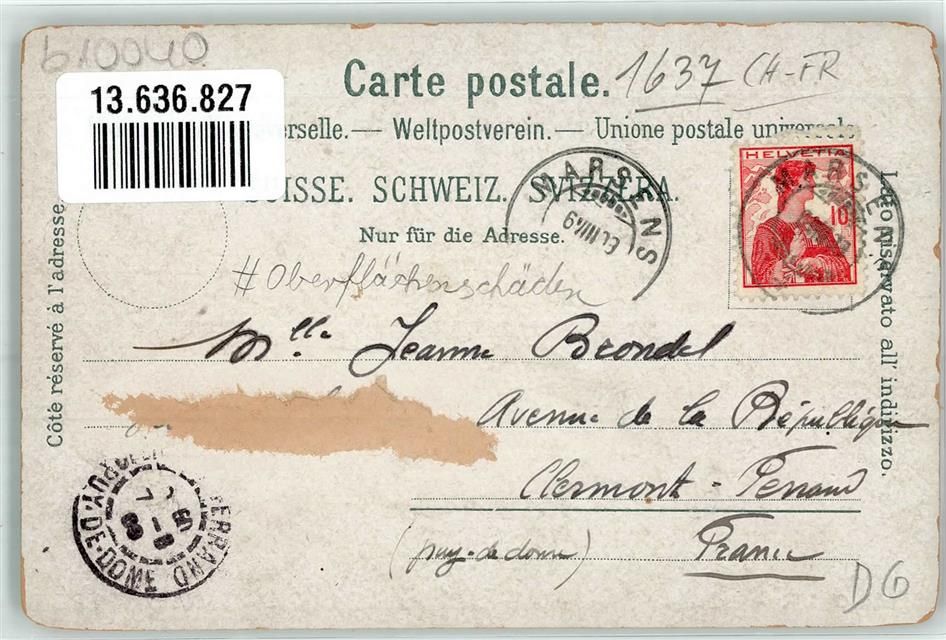 b10040
13.636.827
Carte postale. 1637 CH-FR
erselle.— Weltpostverein.— Unione postale universale
SUISSE. SCHWEIZ. SVIZZERA.
Nur für die Adresse.
Côté réservé à l'adresse.
Lato riservato all' indirizzo.
MARSENS
HELVETIA
10
MARSENS
#Oberflächenschäden
Mlle Jeanne Brondel
Avenue de la République
Clermont-Ferrand
(puy-de-dome) France
FERRAND
PUY-DE-DOME
DG